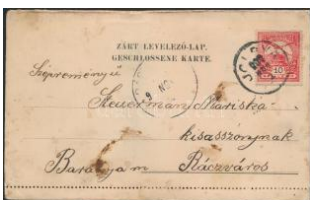 ZÁRT LEVELEZŐ-LAP.
GESCHLOSSENE KARTE.
Steuermann Mariska
kisasszonynak
Baranya m Ráczváros